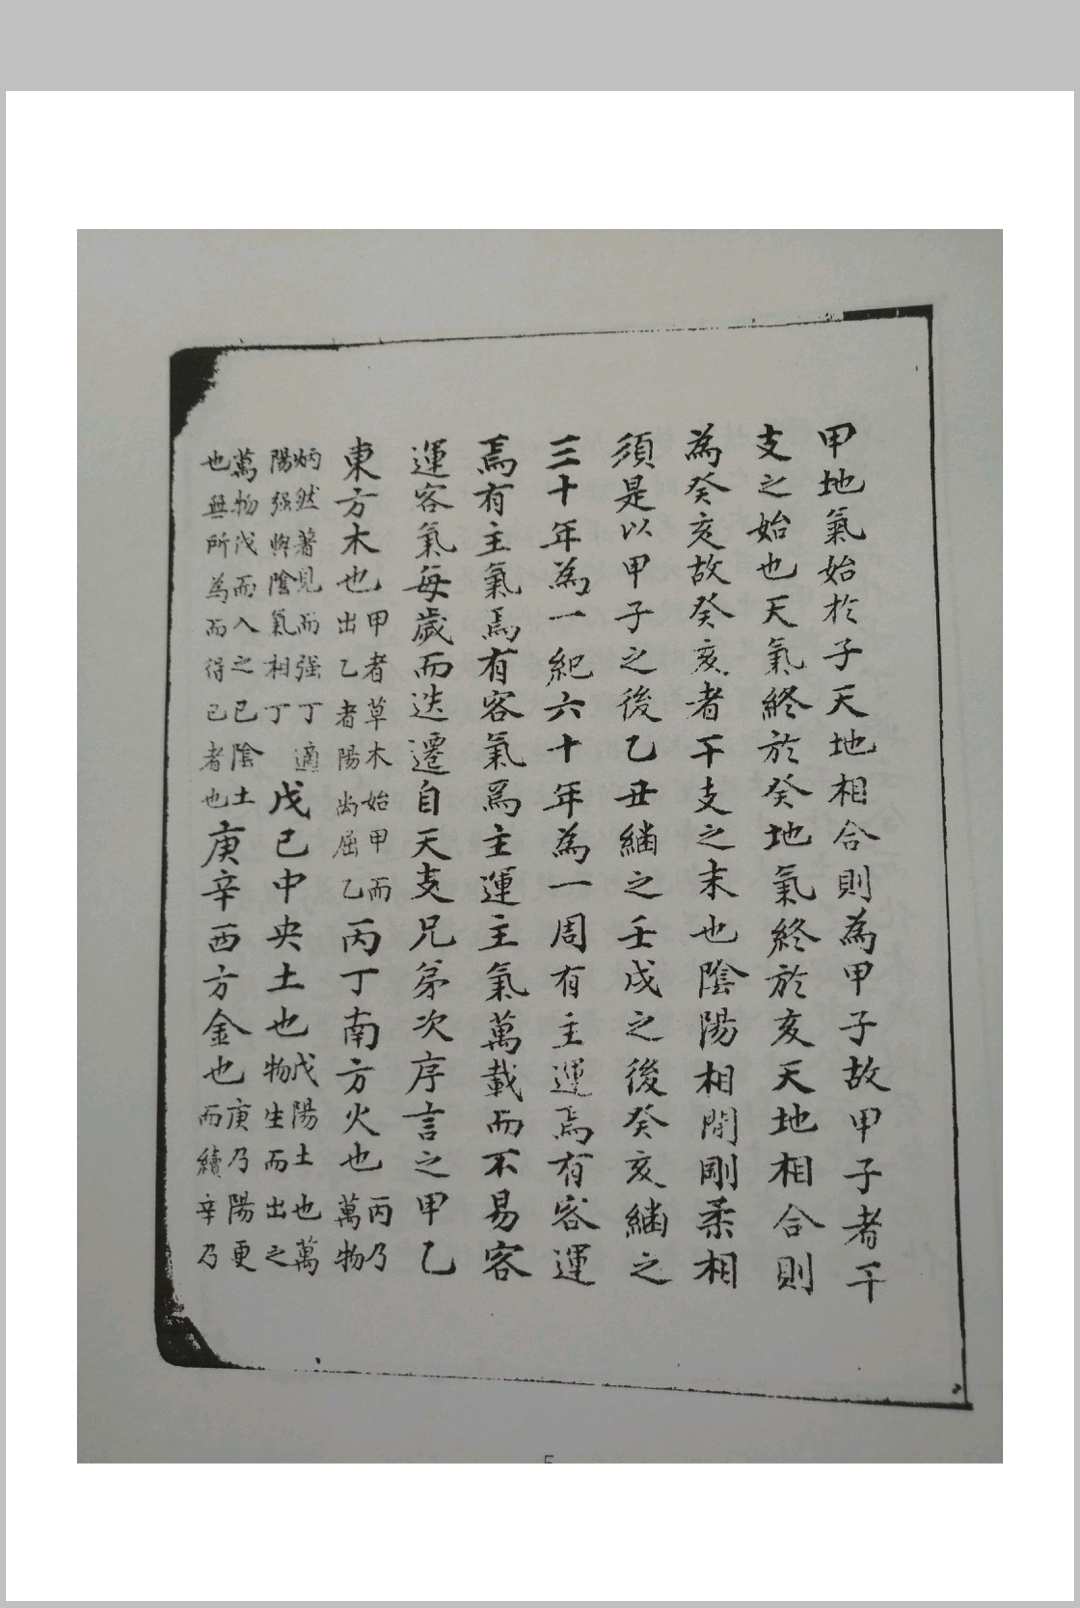 甲地氣始於子天地相合則為甲子故甲子者干
支之始也天氣終於癸地氣終於亥天地相合則
為癸亥故癸亥者干支之末也陰陽相間剛柔相
須是以甲子之後乙丑繼之壬戌之後癸亥繼之
三十年為一紀六十年為一周有主運焉有客運
焉有主氣焉有客氣焉主運主氣萬載而不易客
運客氣每歲而迭遷自天支兄弟次序言之甲乙
東方木也甲者草木始甲而出乙者陽尚屈乙丙丁南方火也丙乃萬物
炳然著見而强丁適陽强與陰氣相丁戊己中央土也戊陽土也萬物生而出之
萬物戊而入之己陰土也無所為而得己者也庚辛西方金也庚乃陽更而續辛乃